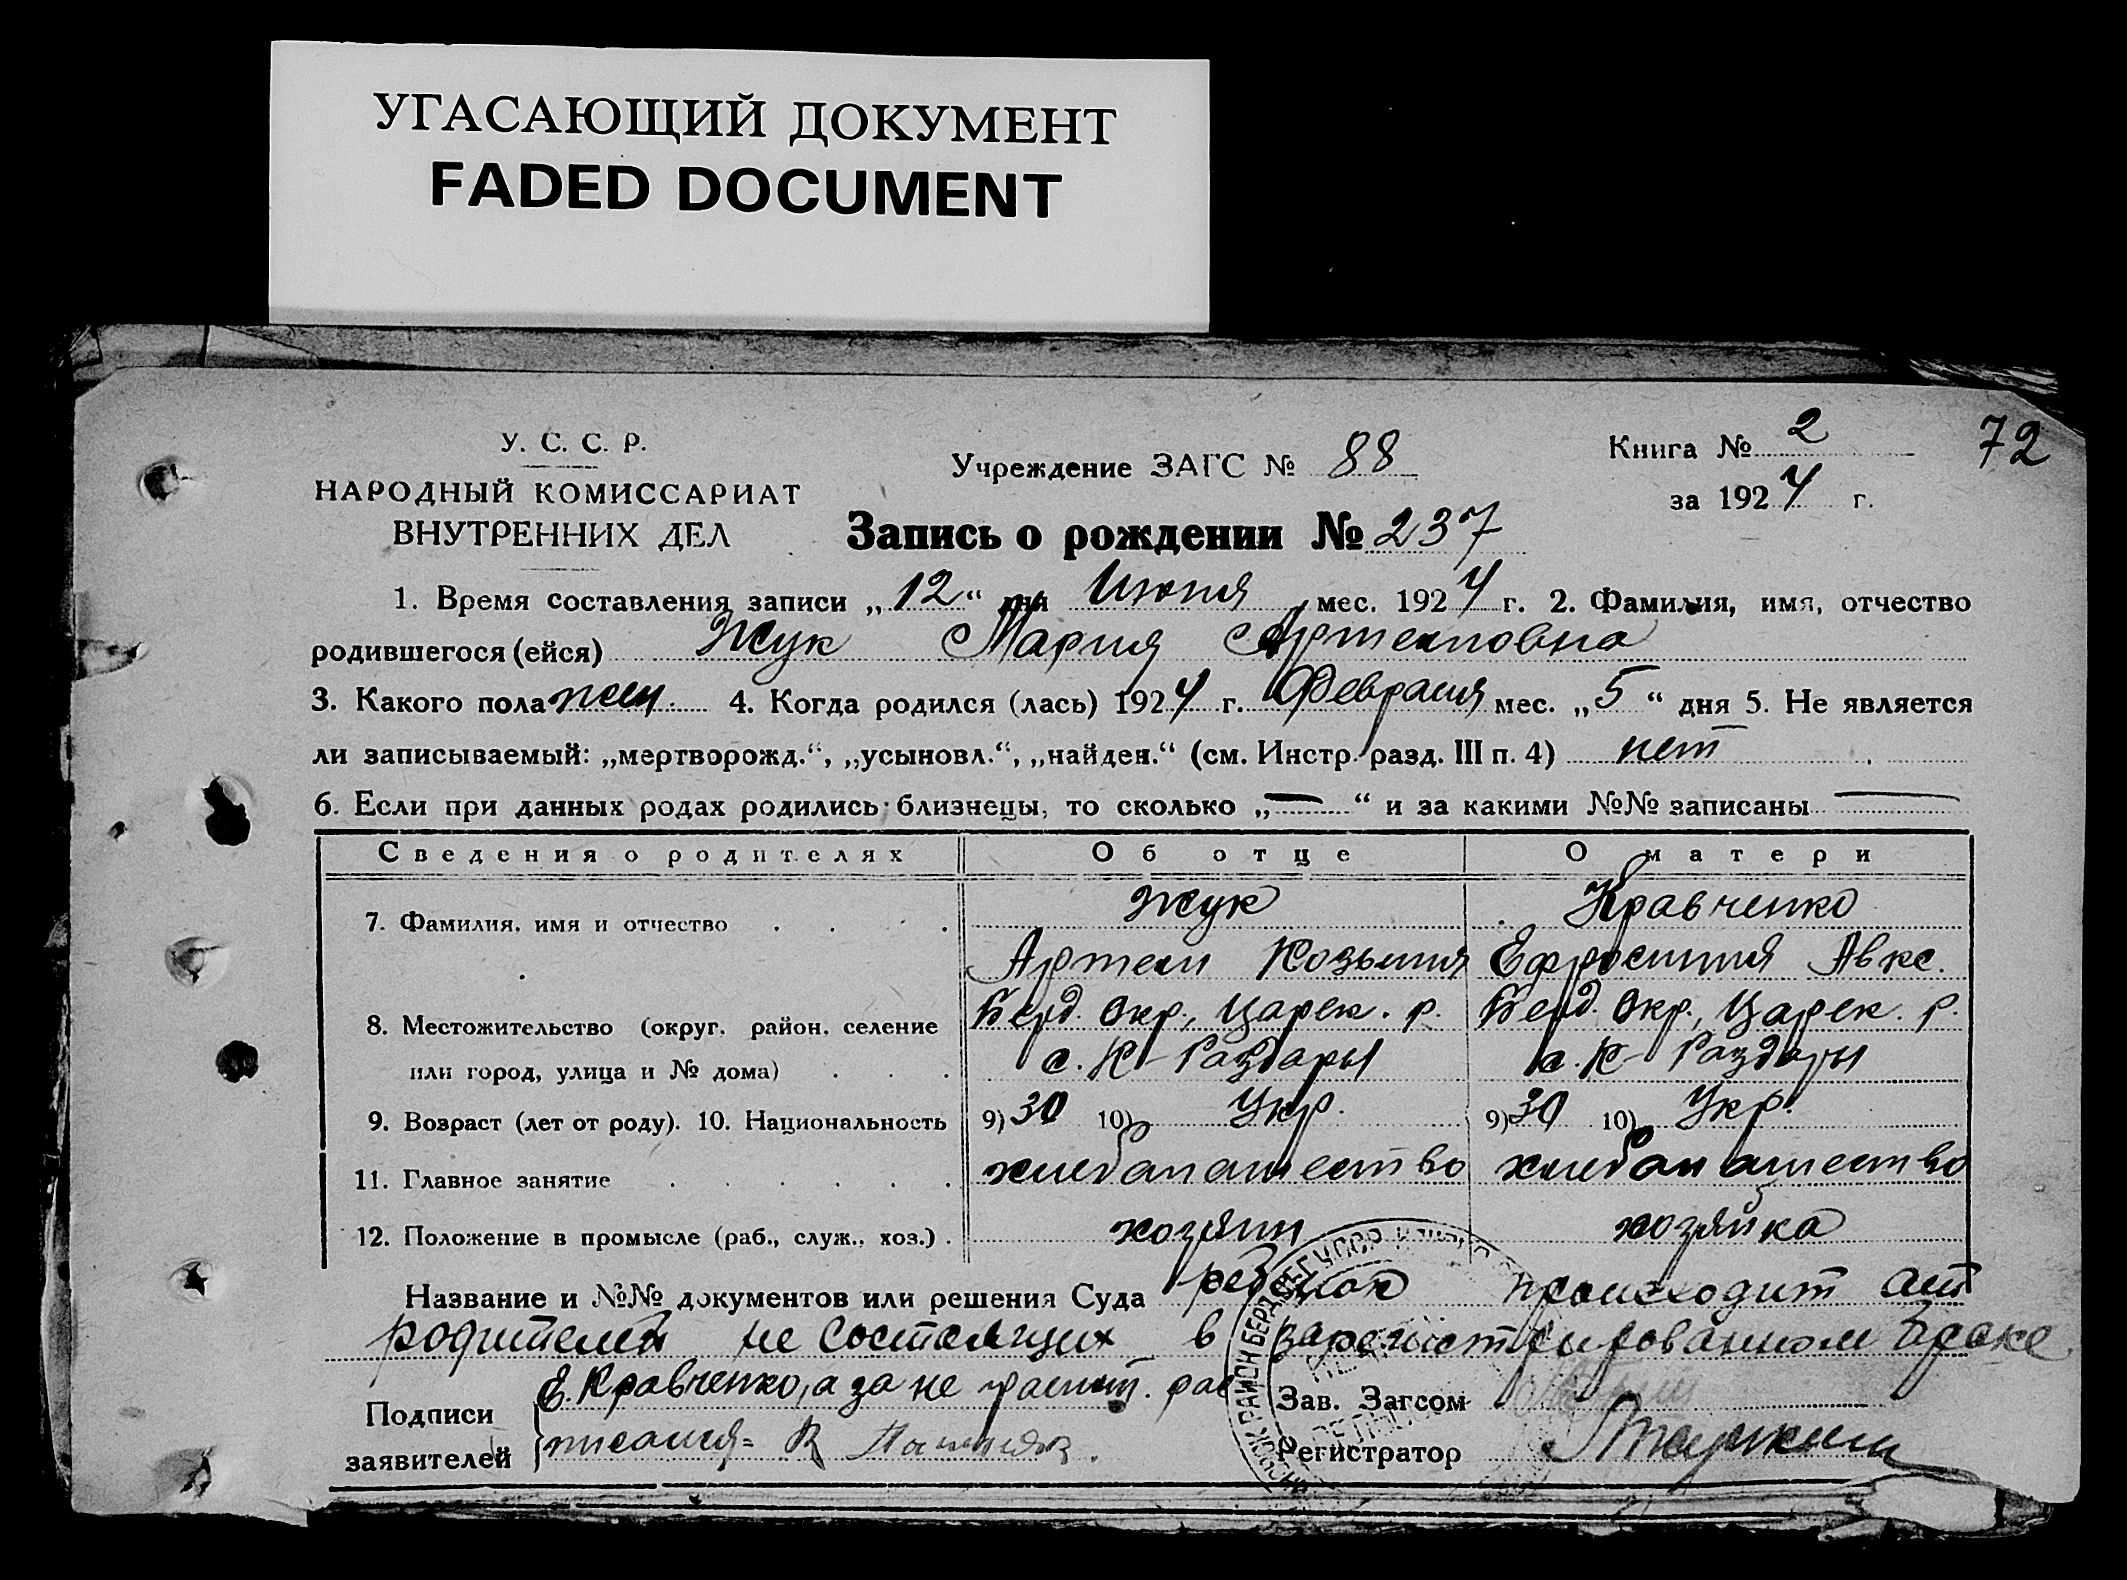 УГАСАЮЩИЙ ДОКУМЕНТ
FADED DOCUMENT
72
У. С. С. Р.
НАРОДНЫЙ КОМИССАРИАТ
ВНУТРЕННИХ ДЕЛ
Учреждение ЗАГС № 88
Книга № 2
за 1924 г.
Запись о рождении № 237
1. Время составления записи „12“ дня Июня мес. 1924 г. 2. Фамилия, имя, отчество
родившегося (ейся) Жук Мария Артемовна
3. Какого пола жен. 4. Когда родился (лась) 1924 г. Февраля мес. „5“ дня 5. Не является
ли записываемый: „мертворожд.“, „усыновл.“, „найден.“ (см. Инстр. разд. III п. 4) нет
6. Если при данных родах родились близнецы, то сколько „—“ и за какими №№ записаны —
Сведения о родителях Об отце О матери
7. Фамилия, имя и отчество Жук Кравченко
Артем Козьмия Ефросиния Авкс.
8. Местожительство (округ, район, селение Берд. Окр., Царек. р. Берд. Окр., Царек. р.
или город, улица и № дома) с. К-Раздоры с. К-Раздоры
9. Возраст (лет от роду). 10. Национальность 9) 30 10) Укр. 9) 30 10) Укр.
11. Главное занятие хлебопашество хлебопашество
12. Положение в промысле (раб., служ., хоз.) хозяин хозяйка
Название и №№ документов или решения Суда ребенок происходит от
родителей не состоящих в зарегистрированном браке
Подписи
заявителей
Е. Кравченко, а за не грамот. рас
писался
Зав. Загсом
Регистратор